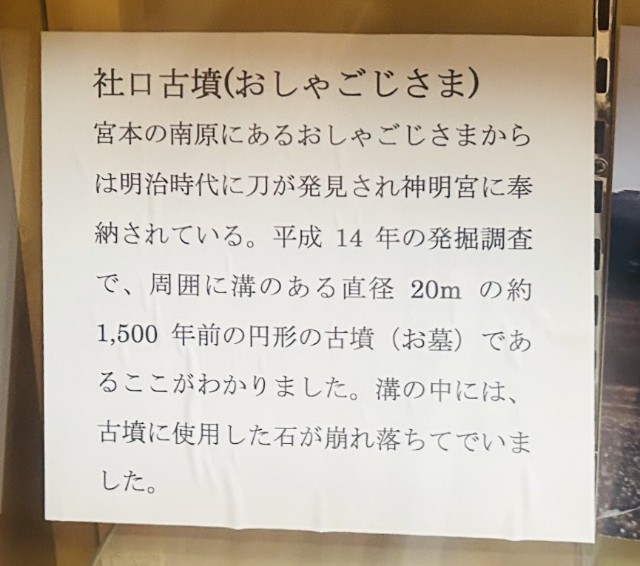 社口古墳(おしゃごじさま)
宮本の南原にあるおしゃごじさまから
は明治時代に刀が発見され神明宮に奉
納されている。平成 14 年の発掘調査
で、周囲に溝のある直径 20m の約
1,500 年前の円形の古墳（お墓）であ
るここがわかりました。溝の中には、
古墳に使用した石が崩れ落ちてでいま
した。